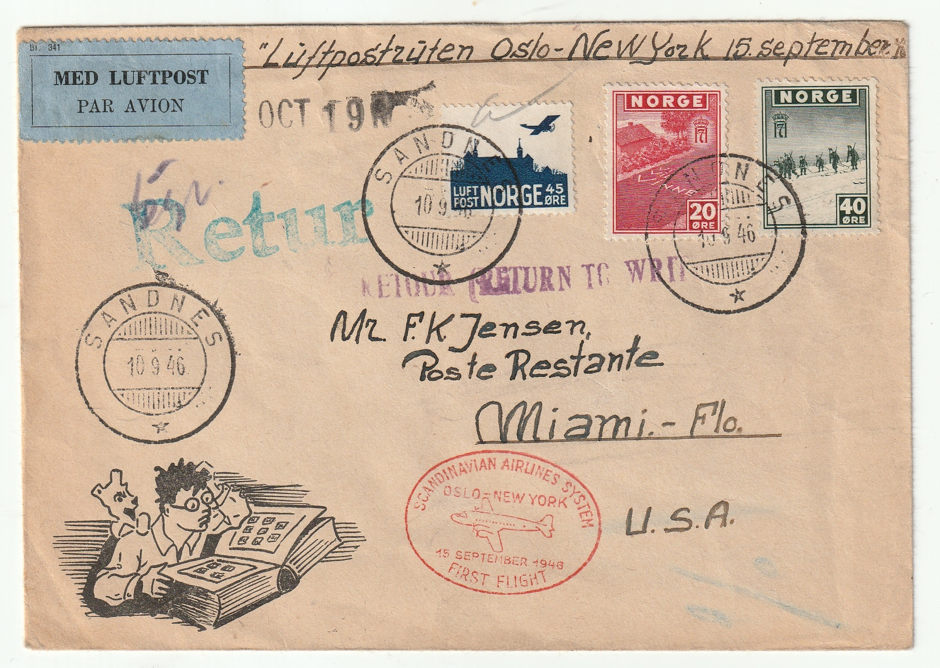 "Luftpostruten Oslo-New York 15. september
Bl. 341
MED LUFTPOST
PAR AVION
OCT 19
LUFT
POST NORGE 45
ØRE
NORGE
20
ØRE
NORGE
40
ØRE
SANDNES
10 9 46
SANDNES
10 9 46
Retur
RETOUR RETURN TO WRIT
SANDNES
10 9 46
Mr F.K Jensen,
Poste Restante
Miami.- Flo.
U.S.A.
SCANDINAVIAN AIRLINES SYSTEM
OSLO-NEW YORK
15 SEPTEMBER 1946
FIRST FLIGHT